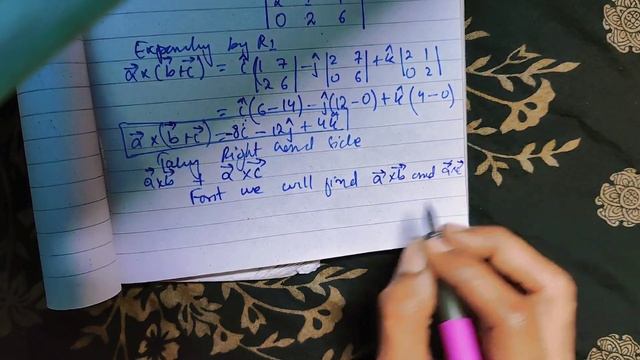 2 1 7
0 2 6
Expanding by R1
a⃗×(b⃗+c⃗) = î |1 7| - ĵ |2 7| + k̂ |2 1|
2 6 0 6 0 2
= î(6-14) - ĵ(12-0) + k̂(4-0)
a⃗×(b⃗+c⃗) = -8î - 12ĵ + 4k̂
Taking Right hand side
a⃗×b⃗ + a⃗×c⃗
First we will find a⃗×b⃗ and a⃗×c⃗